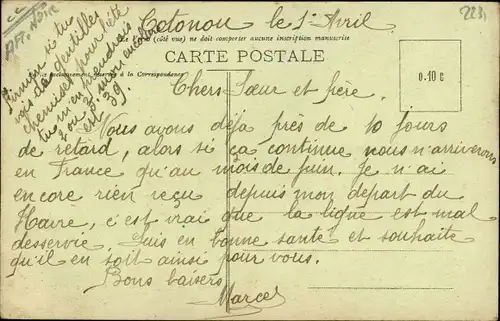 Cotonou le 1er Avril
223
(côté vue) ne doit comporter aucune inscription manuscrite
CARTE POSTALE
à la Correspondance
0.10 c
Firmin si tu
vois de gentilles
chemises pour l'été
tu m'en prendrais
2 ou 3. mon encolure
est 39.
Chers Sœur et frère.
Nous avons déja près de 10 jours
de retard, alors si ça continue nous n'arriverons
en France qu'au mois de juin. Je n'ai
encore rien reçu depuis mon départ du
Havre, c'est vrai que la ligne est mal
desservie. Suis en bonne santé et souhaite
qu'il en soit ainsi pour vous.
Bons baisers
Marcel